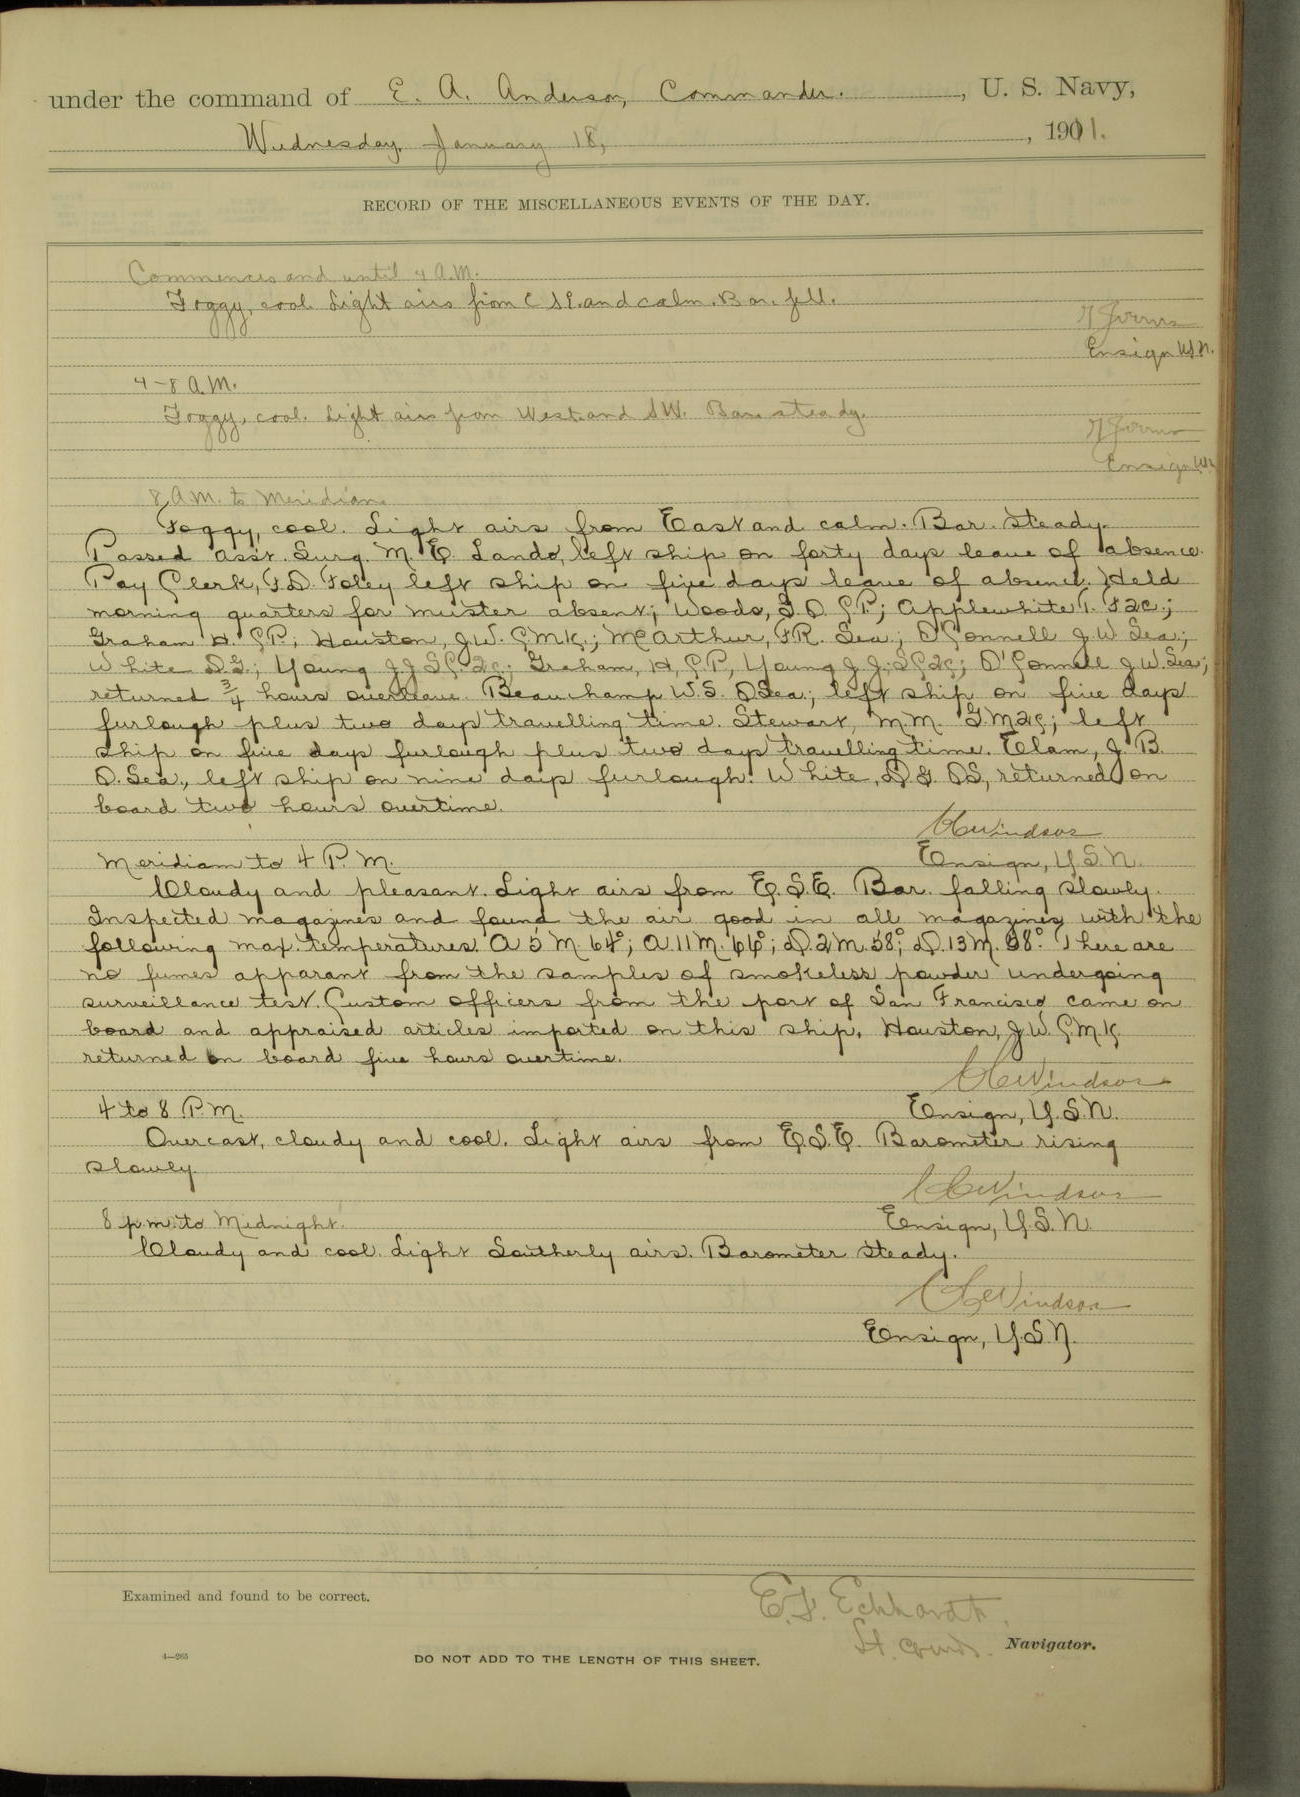 under the command of E. A. Anderson, Commander. , U. S. Navy,
Wednesday, January 18, , 1911.
RECORD OF THE MISCELLANEOUS EVENTS OF THE DAY.
Commences and until 4 A.M.
Foggy, cool. Light airs from E SE. and calm. Bar. fell.
Ensign USN.
4-8 A.M.
Foggy, cool. Light airs from West and SW. Bar. steady.
Ensign USN
8 A.M. to Meridian.
Foggy, cool. Light airs from East and calm. Bar. steady.
Passed Asst. Surg. M. E. Lando, left ship on forty days leave of absence.
Pay Clerk, F.D. Foley left ship on five days leave of absence. Held
morning quarters for muster absent; Woods, G. O CP; Applewhite T. F2c.;
Graham H. CP; Houston, J.W. CMK; McArthur, F.R. Sea.; O'Connell J.W Sea.;
White D.G.; Young J.J SC2c; Graham, H, C.P, Young J J. SC2c; O'Connell J W. Sea;
returned 3/4 hours overleave. Beauchamp W.S. OSea.; left ship on five days
furlough plus two days travelling time. Stewart, M.M. G.M2C; left
ship on five days furlough plus two days travelling time. Elam, J. B.
O. Sea., left ship on nine days furlough. White, D G OS, returned on
board two hours overtime.
C Windsor
Meridian to 4 P.M. Ensign, U.S.N.
Cloudy and pleasant. Light airs from E.S.E. Bar. falling slowly.
Inspected magazines and found the air good in all magazines with the
following max temperatures. A 5 M. 64°; A. 11 M. 66°; D. 2 M. 58°; D. 13 M. 58°. There are
no fumes apparant from the samples of smokeless powder undergoing
surveillance test. Custom officers from the port of San Francisco came on
board and appraised articles imported on this ship. Houston, J.W. CMK
returned on board five hours overtime.
C Windsor
4 to 8 P.M. Ensign, U.S.N.
Overcast, cloudy and cool. Light airs from E.S.E. Barometer rising
slowly.
C Windsor
8 p.m. to Midnight. Ensign, U.S.N.
Cloudy and cool. Light Southerly airs. Barometer steady.
C Windsor
Ensign, U.S.N.
Examined and found to be correct.
E.F. Eckhardt,
Lt. Comdr. Navigator.
4—265
DO NOT ADD TO THE LENGTH OF THIS SHEET.